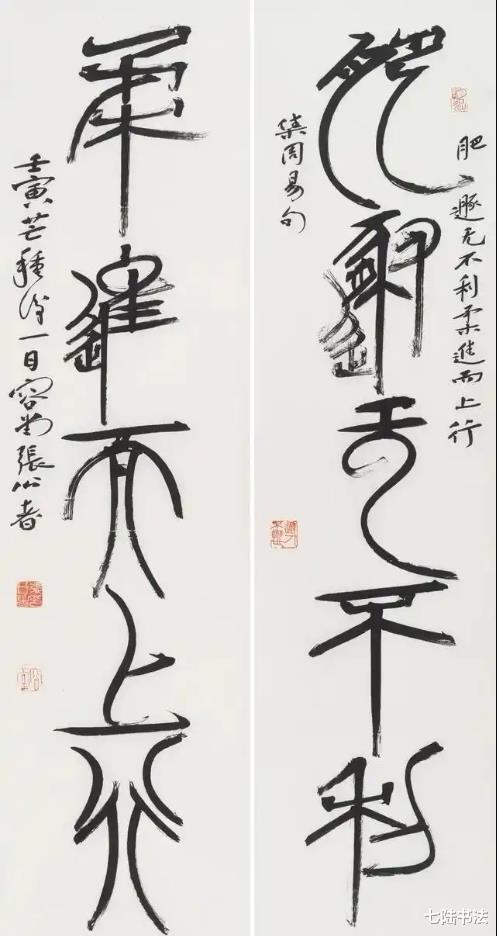 肥遯无不利柔進而上行
肥遯无不利
集周易句
柔進而上行
壬寅芒種後一日容堂張公者
七陆书法